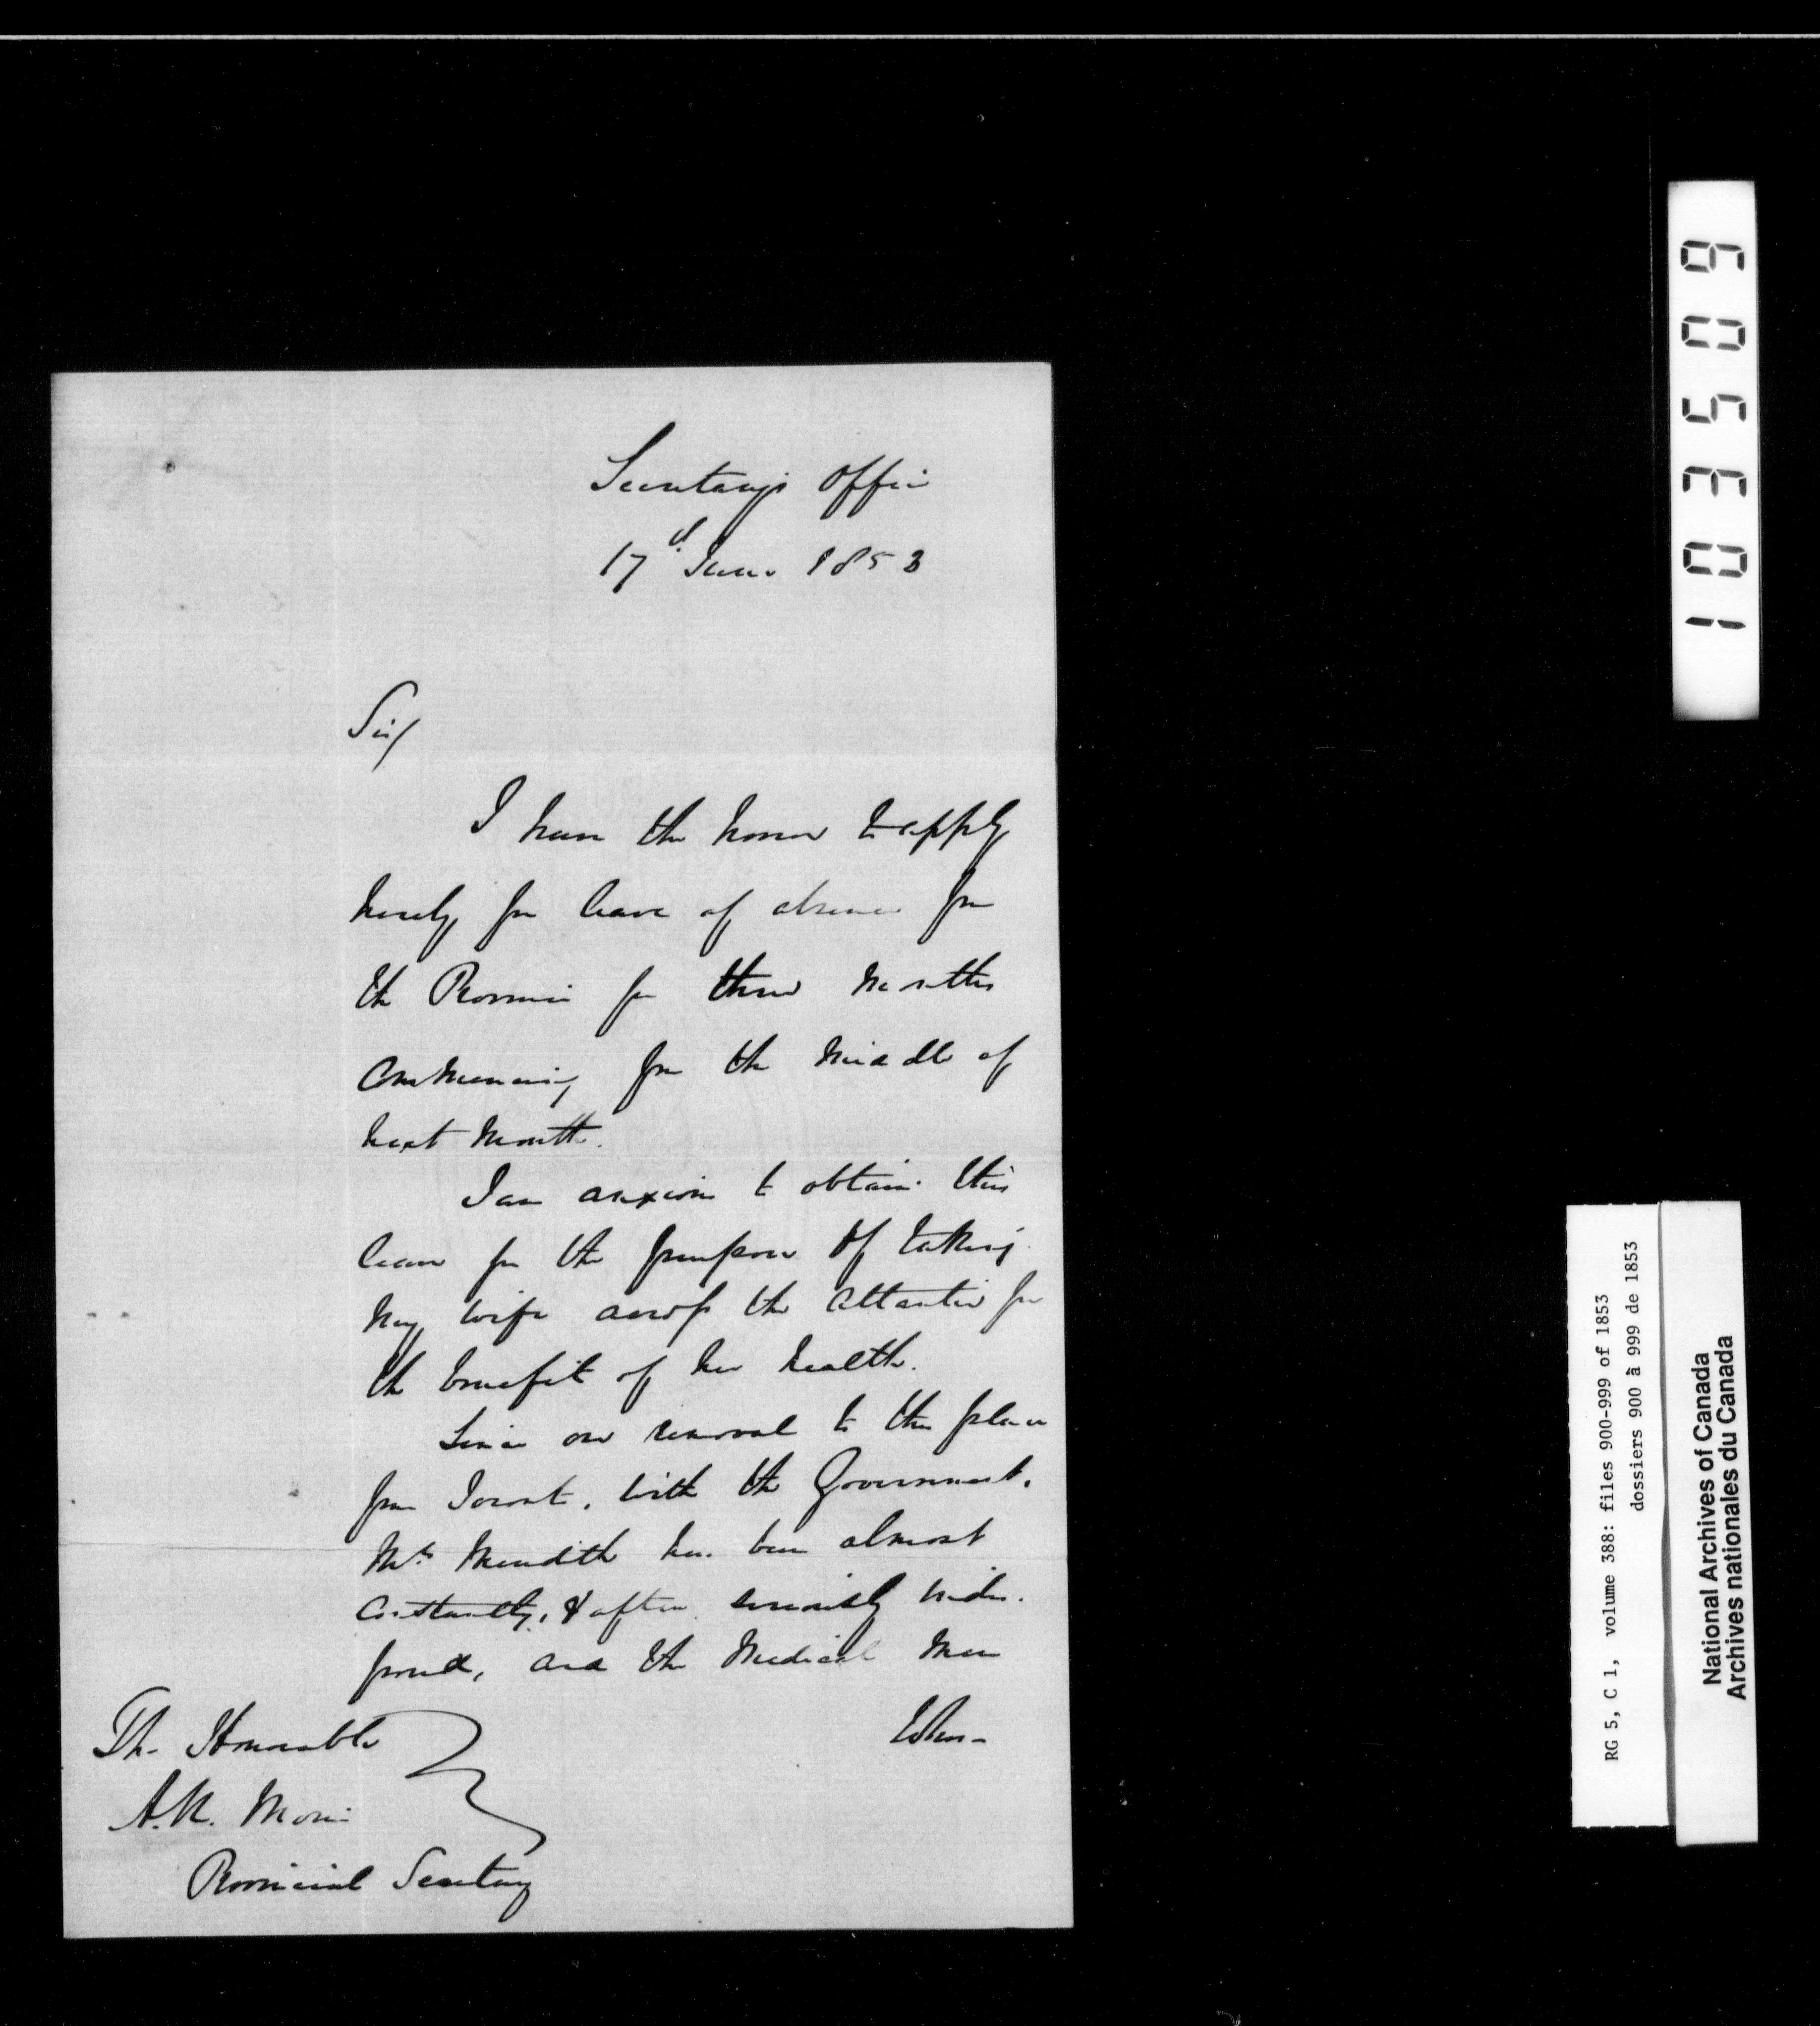 Secretary's Office
17th June 1853
Sir/
I have the honor to apply
hereby for leave of absence from
the Province for three Months
Commencing from the Middle of
next Month.
I am anxious to obtain this
leave for the purpose of taking
my wife across the Atlantic for
the benefit of her health.
Since our removal to this place
from Toronto, with the Government,
Mrs Meredith has been almost
Constantly, & often seriously indis-
posed, and the Medical Men
whom
The Honorable
A.N. Morin
Provincial Secretary
103509
RG 5, C 1, volume 388: files 900-999 of 1853
dossiers 900 à 999 de 1853
National Archives of Canada
Archives nationales du Canada